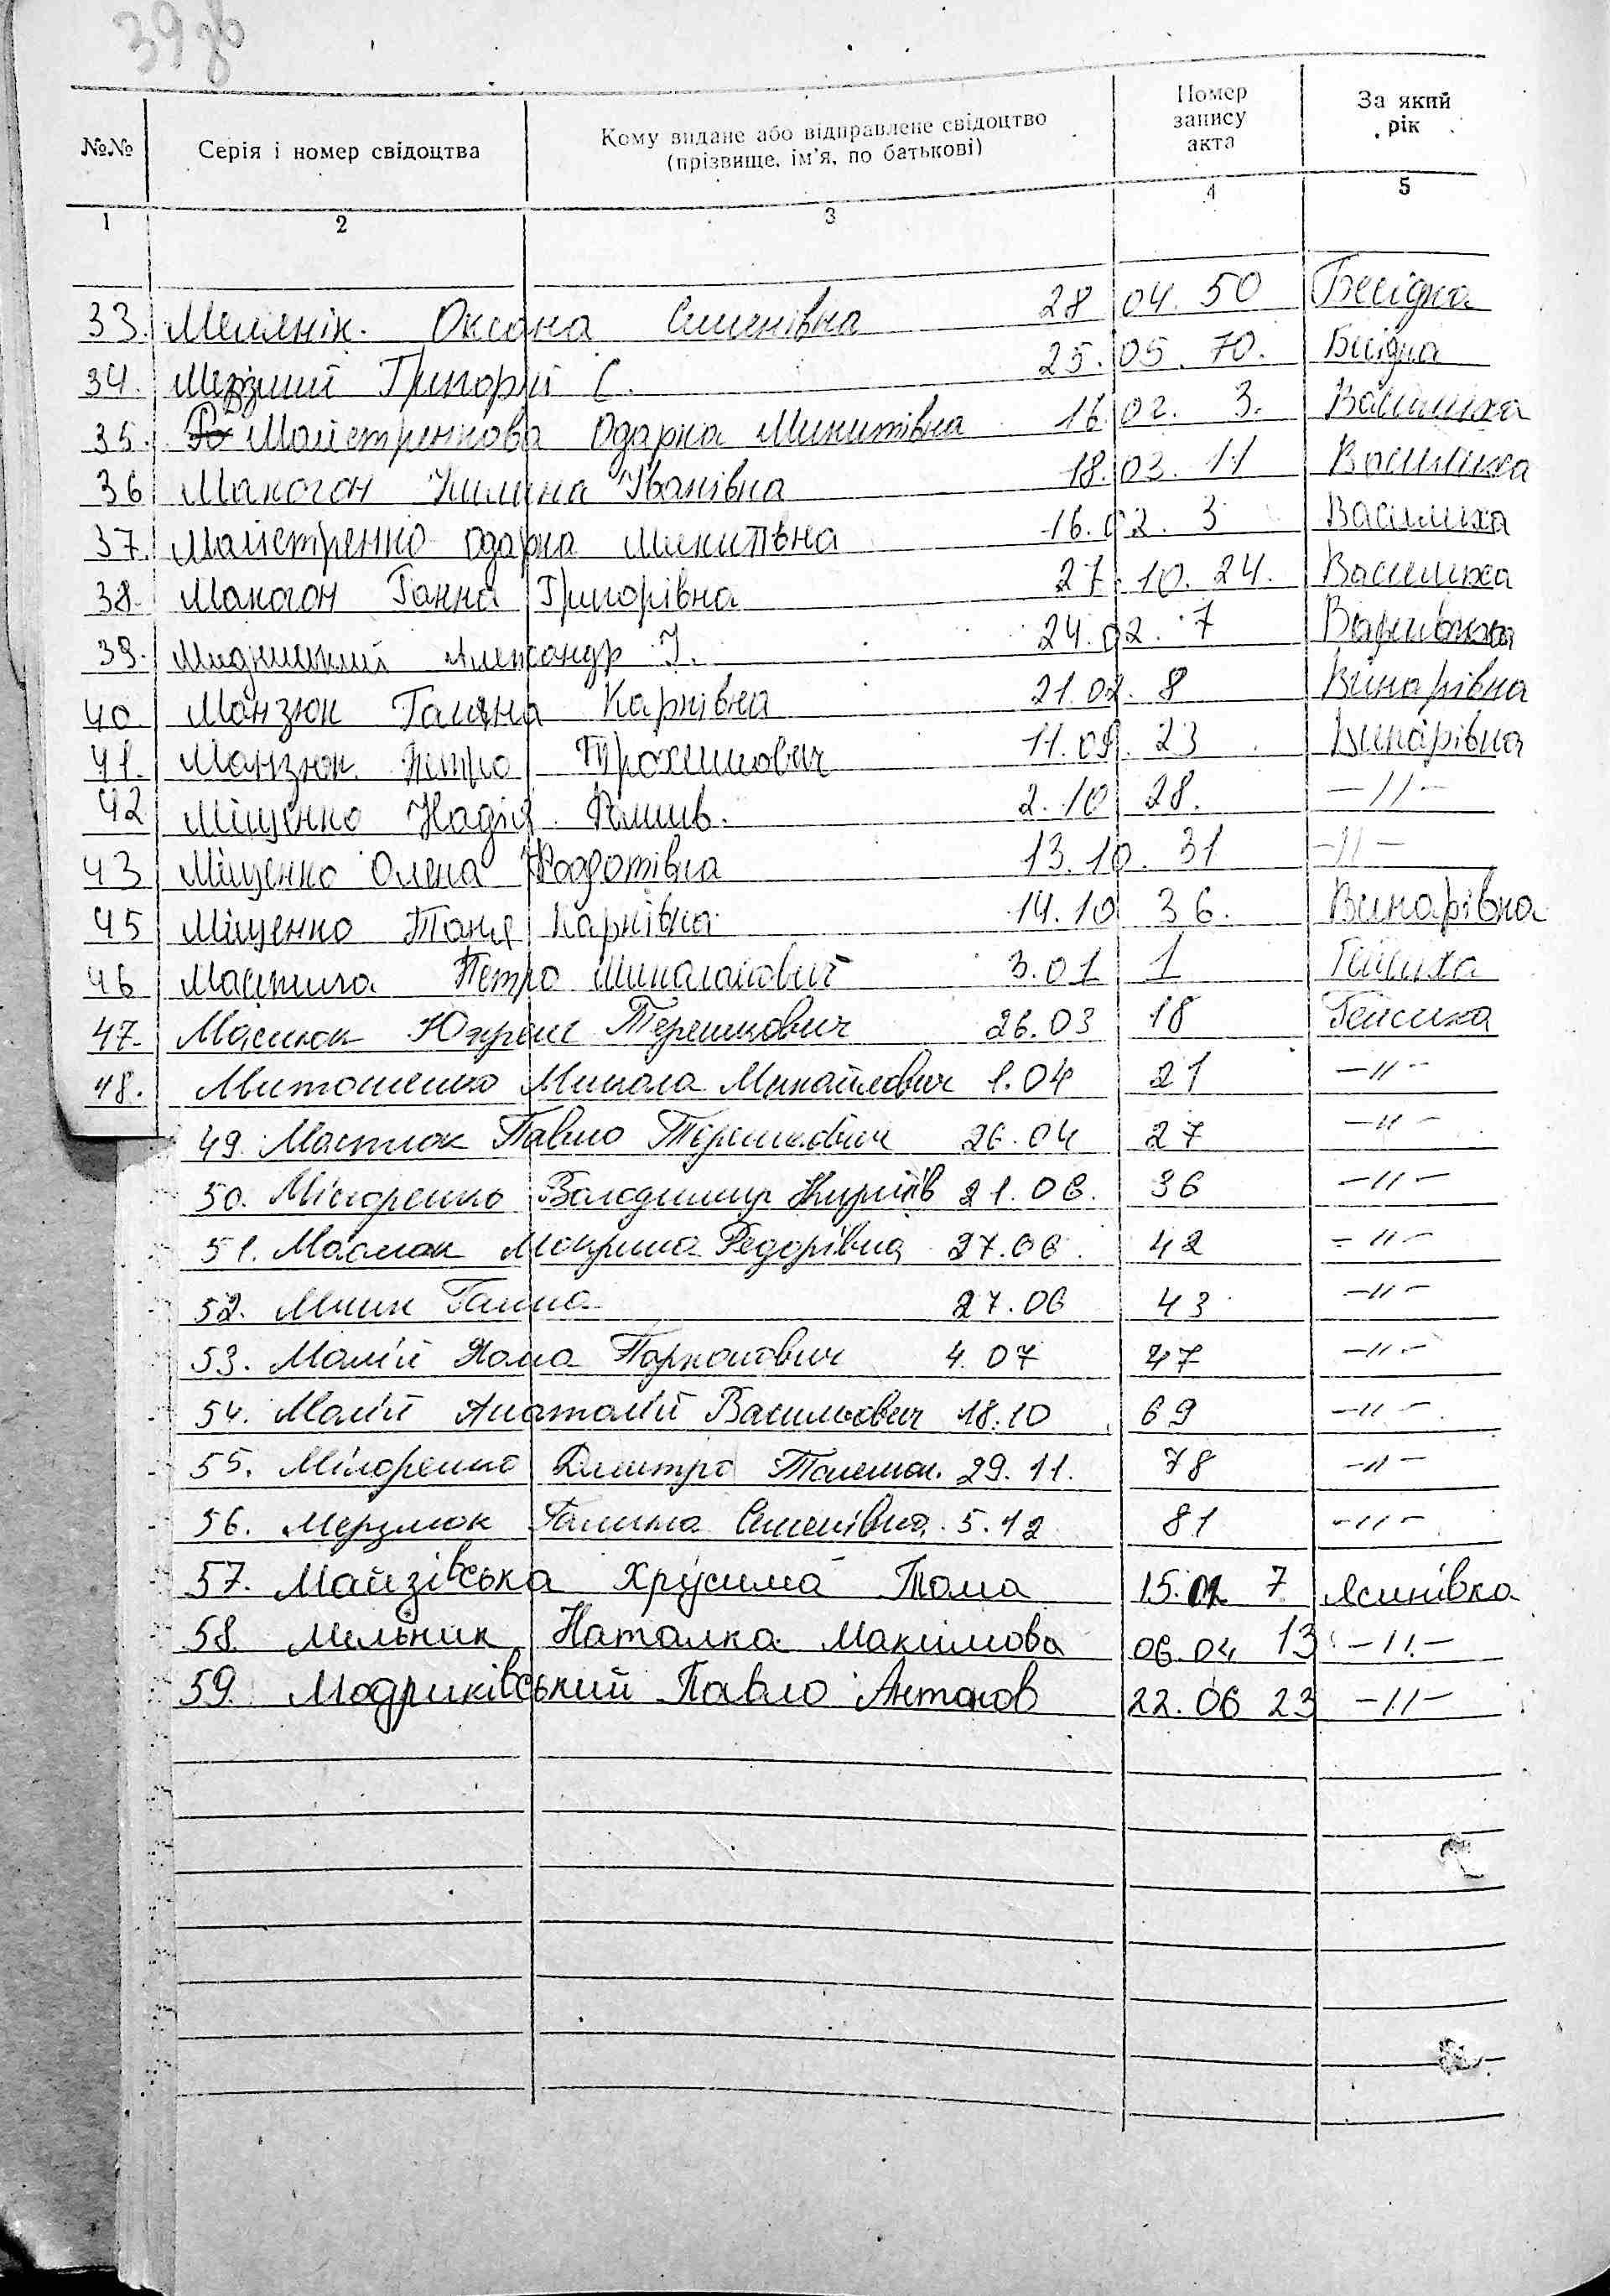 39 зв
№№ Серія і номер свідоцтва Кому видане або відправлене свідоцтво (прізвище, ім'я, по батькові) Номер запису акта За який рік
1 2 3 4 5
33. Мельнік Оксана Семенівна 28 04. 50 Бесідка
34. Григорій С. 25. 05. 70. Бесідка
35. Майстренкова Одарка Микитівна 16. 02. 3. Василиха
36 Макогон Уляна Іванівна 18. 03. 11 Василиха
37. Майстренко Одарка Микитівна 16. 02. 3 Василиха
38. Макогон Ганна Григорівна 27. 10. 24. Василиха
39. Александр І. 24. 02. 7
40 Манзюк Галяна Карпівна 21. 02. 8 Винарівка
41. Манзюк Петро Трохимович 11. 09. 23 Винарівка
42 Міщенко Надія 2. 10 28. -//-
43 Міщенко Олена Федотівна 13. 10. 31 -//-
45 Міщенко Таня Карпівна 14. 10 36. Винарівка
46 Петро Миколайович 3. 01 1 Гейсиха
47. Масюк Юхрем Терешкович 26. 03 18 Гейсиха
48. Митошенко Микола Михайлович 1. 04 21 -//-
49. Мастюк Павло Терешкович 26. 04 27 -//-
50. Володимир 21. 06. 36 -//-
51. Масюк Мокрина Федорівна 27. 06. 42 -//-
52. Ганна 27. 06 43 -//-
53. Малій Хома Парконович 4. 07 47 -//-
54. Малій Анатолій Васильович 18. 10 69 -//-
55. Дмитро 29. 11. 78 -//-
56. Мерзлюк Галина Семенівна. 5. 12 81 -//-
57. Майзівська Хрусима Тома 15. 02 7 Ясинівка
58. Мельник Наталка Максимова 06 04 13 -//-
59. Модриківський Павло Антонов 22. 06 23 -//-